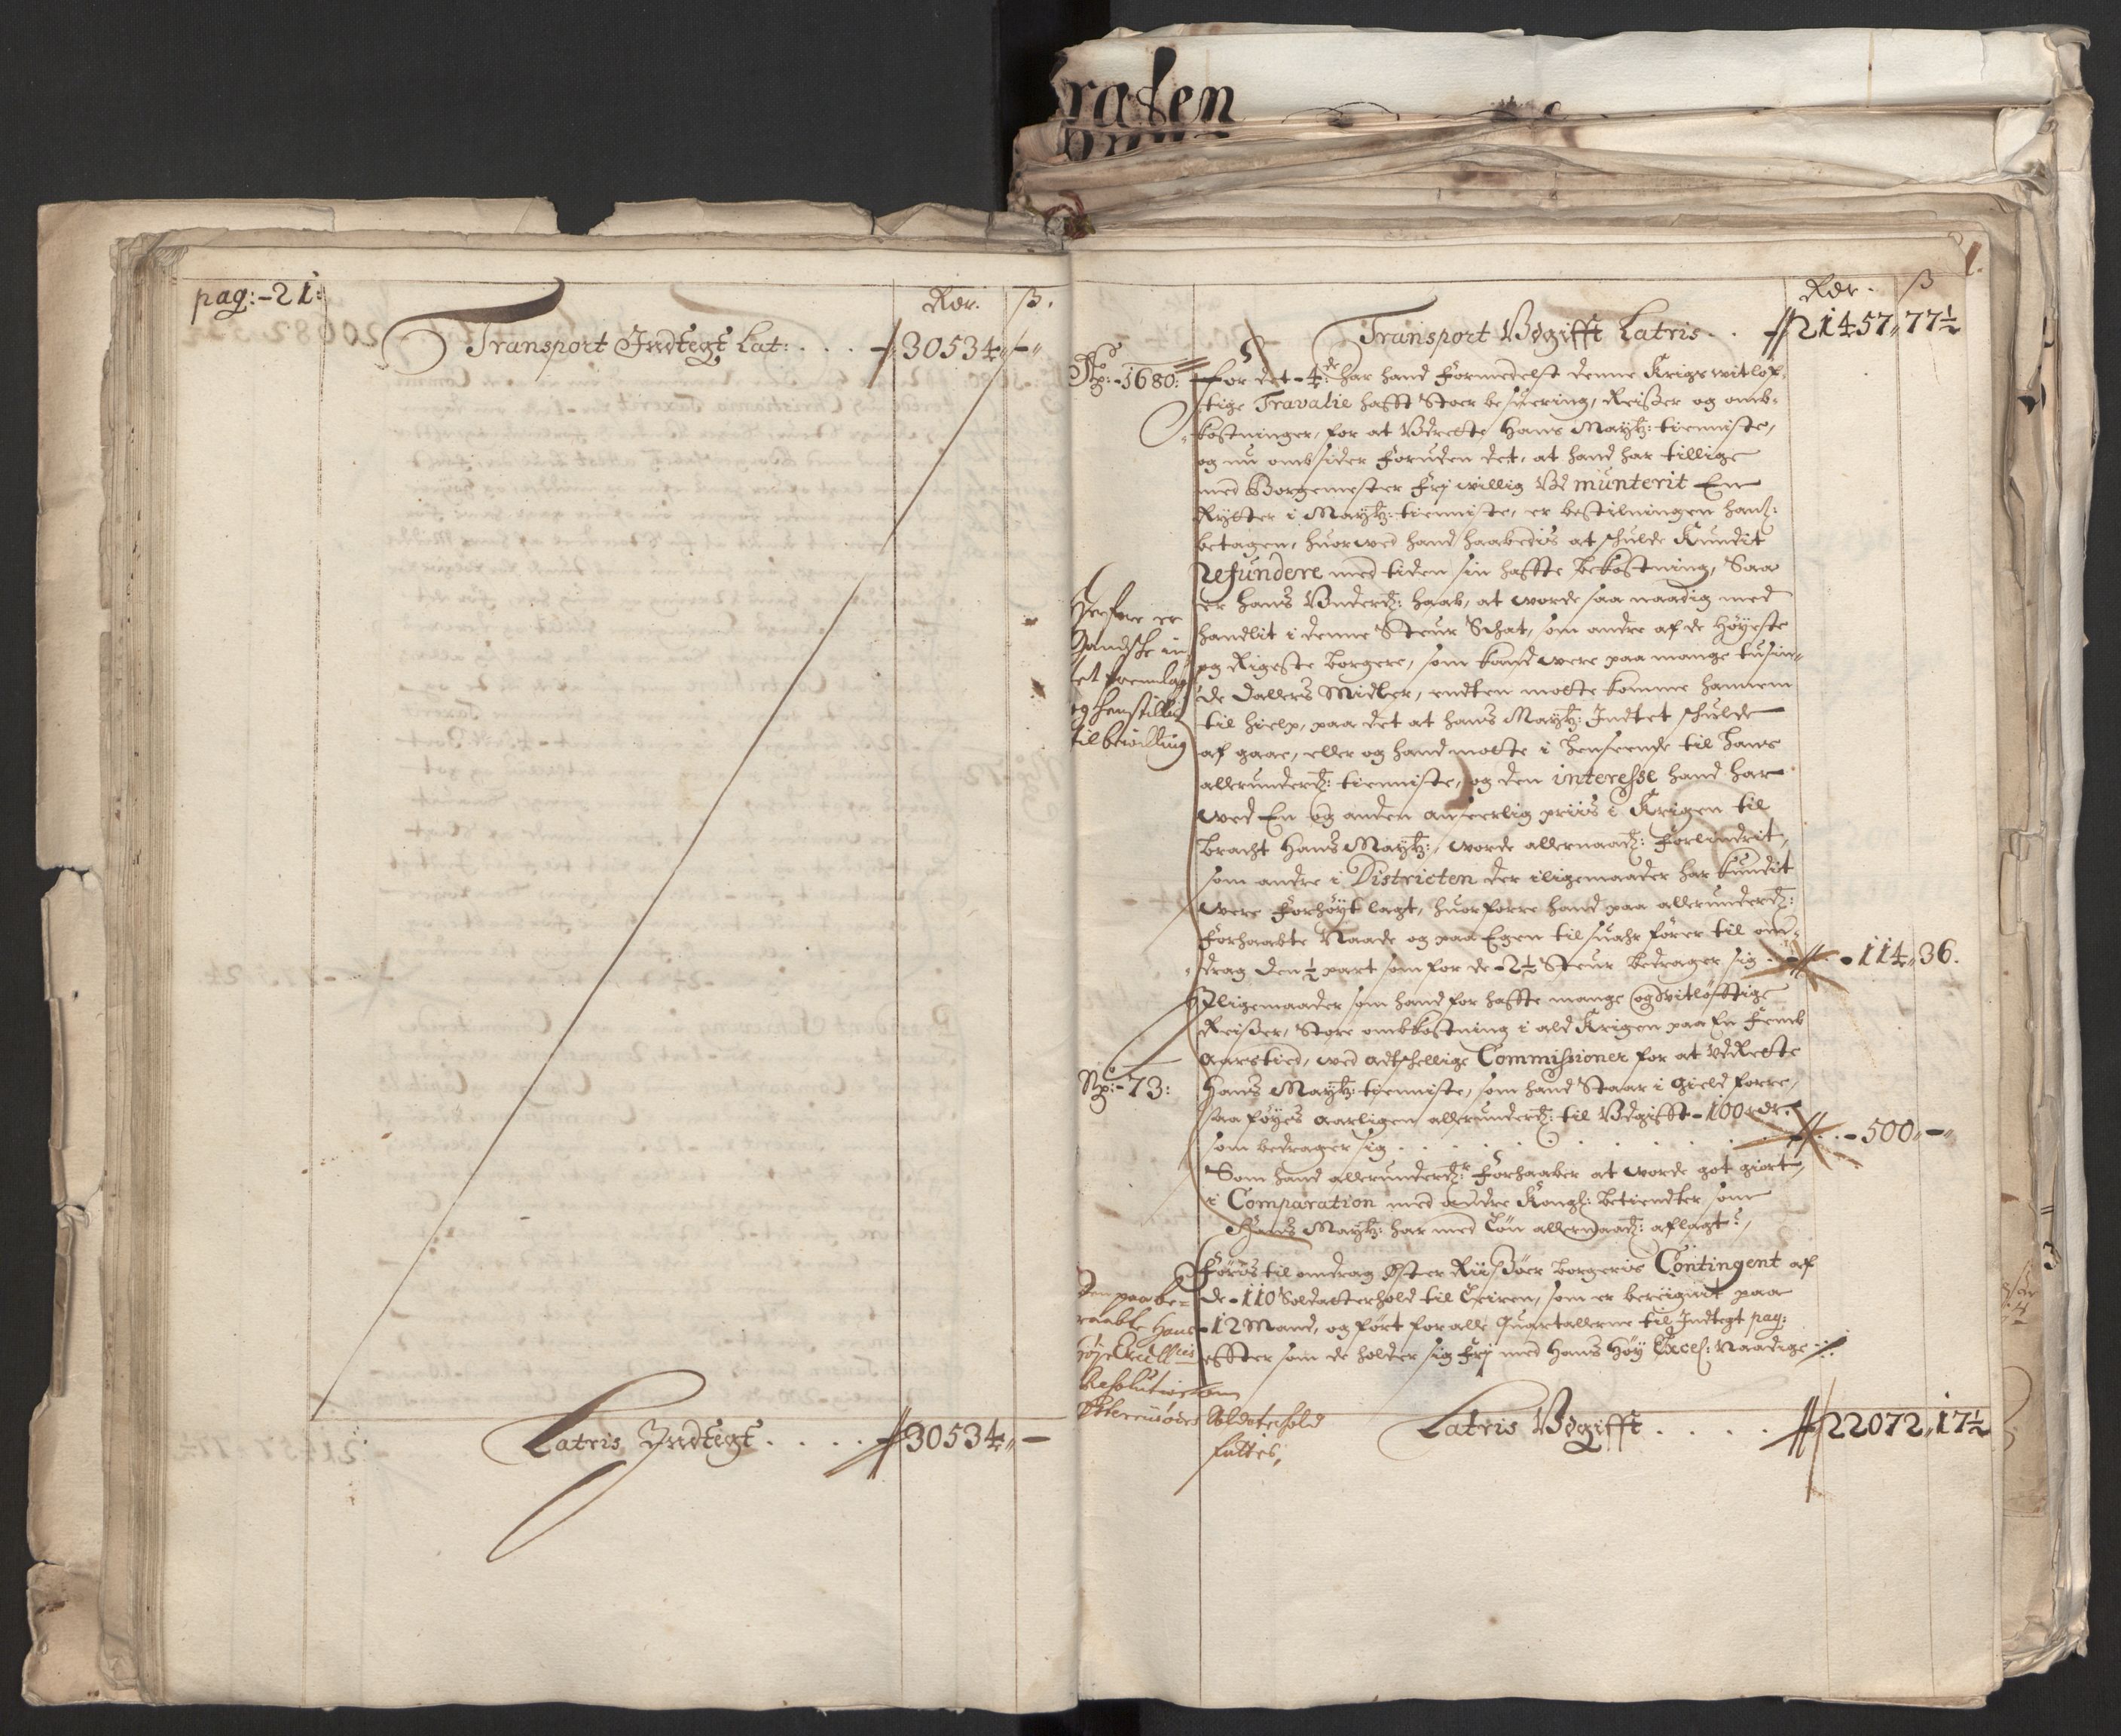 raten
pag:-21:
Rdr. ß.
Transport Indtegt Lat: . . . 30534,, -,,
Latris Indtegt . . . . 30534,, -
1.
Rdr. ß
Transport Vdgifft Latris . . 21457,, 77½
No
1680: For det - 4de: har hand formedelst denne Krigs witløf-
tige Travalie hafft Stoer besuering, Reiser og omb-
kostninger, for at Vdrette Hans Mayttz: tienniste,
og nu ombsider foruden det, at hand har tillige
med Borgemester frj willig Vd munterit En
Rytter i Mayttz: tienniste, er bestilningen hans:
betagen, huorwed hand haabedis at skulde kundit
refundere med tiden sin haffte bekostning, Saa
er hans Vnderd: haab, at worde saa naadig med
handlit i denne Steur Schat, som andre af de Høyeste
og Rigeste borgere, som kand were paa mange tusin-
de dallers Midler, endten motte komme hannem
til hielp, paa det at hans Mayttz: Indtet skulde
af gaae, eller og hand motte i henseende til hans
allerunderd: tienniste, og den interesse hand har
wed En og anden anseerlig priis i Krigen til
bracht Hans Mayttz:, worde allernaad: forlindrit,
som andre i Districten der iligemaader har kundit
were forhøyt lagt, huorforre hand paa allerunderd:
forhaabte Naade og paa Egen til suahr fører til om-
drag den ½ part som for de - 2½ Steur bedrager sig . - 114,, 36.
Herfore er
Gandske in-
tet fremlagt
og henstillis
til bewilling
Iligemaader som hand for haffte mange og vitløfftige
Reiser, Store ombkostning i ald Krigen paa En femb
aarstied, wed adskellige Commissioner for at VdRette
No: - 73: Hans Mayttz: tienniste, som hand Staar i gield forre,
saa føyes aarligen allerunderd: til Vdgifft - 100 rdr.
som bedrager sig . . . . . . . - 500,, -,,
Som hand allerunderd: forhaaber at worde got giort,
i Comparation med andre Kongl: betiendter, som
Hans Mayttz: har med Løn allernaad: aflagt,
Føris til omdrag Øster Riisøer borgeris Contingent af
de - 110 Soldatterhold til Leiren, som er bereignit paa
- 12 Mand, og ført for alle Quartallerne til Indtegt pag:
effter som de holder sig frj med Hans Høy Excel: Naadige ./.
Den paabe-
raabte Hans
Høye Excell
Resolution om
Østerriisøers Soldaterhold
fattes,
Latris Vdgifft . . . . 22072,, 17½